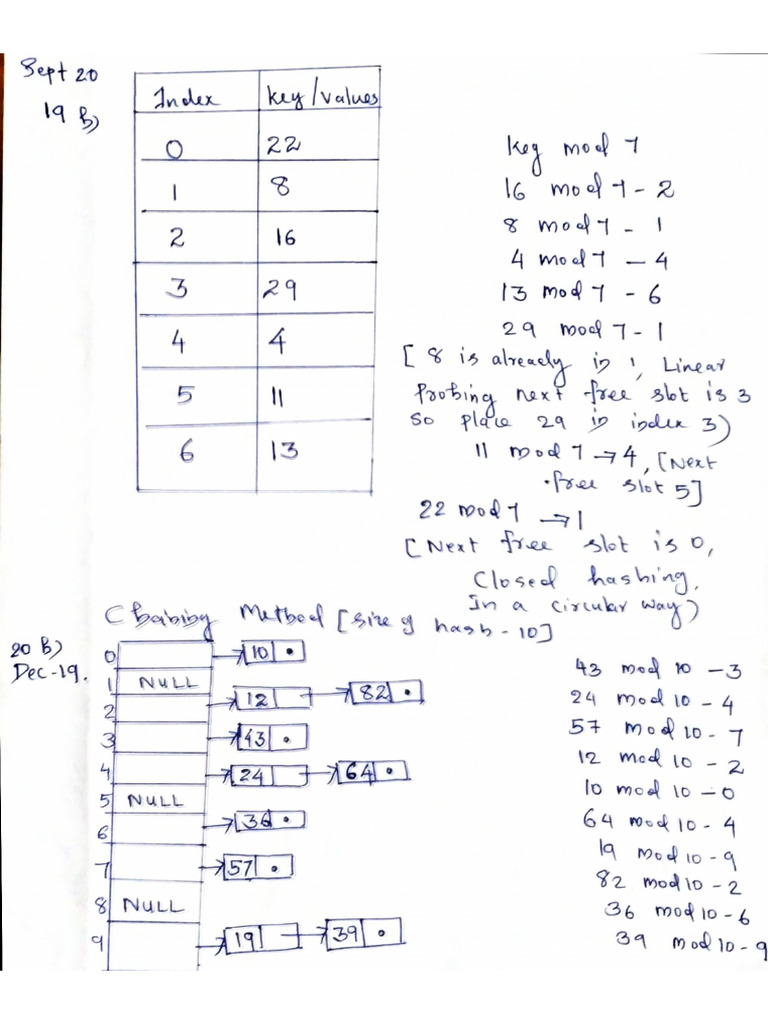 Sept 20
19 B)
Index key/values
0 22
1 8
2 16
3 29
4 4
5 11
6 13
key mod 7
16 mod 7 - 2
8 mod 7 - 1
4 mod 7 - 4
13 mod 7 - 6
29 mod 7 - 1
[ 8 is already in 1, Linear
Probing next free slot is 3
so place 29 in index 3)
11 mod 7 → 4, [Next
free slot 5]
22 mod 7 → 1
[Next free slot is 0,
Closed hashing,
In a circular way)
Chaining Method [size of hash - 10]
20 B)
Dec-19.
0 10 •
1 NULL
2 12 82 •
3 43 •
4 24 64 •
5 NULL
6 36 •
7 57 •
8 NULL
9 19 39 •
43 mod 10 - 3
24 mod 10 - 4
57 mod 10 - 7
12 mod 10 - 2
10 mod 10 - 0
64 mod 10 - 4
19 mod 10 - 9
82 mod 10 - 2
36 mod 10 - 6
39 mod 10 - 9